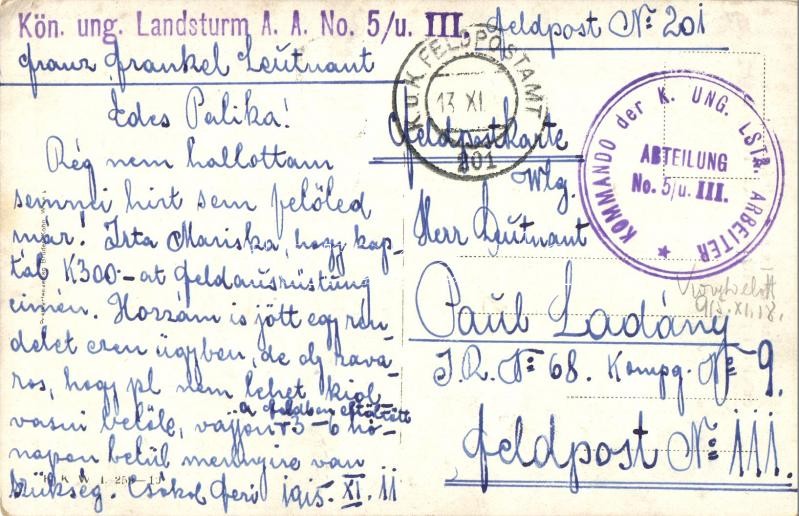 Kön. ung. Landsturm A. A. No. 5/u. III. Feldpost № 201
Franz Frankel Leutnant
Edes Palika!
Rég nem hallottam
semmi hirt sem felöled
már! Irta Mariska, hogy kap-
tál K300.- at Feldausrüstung
cimén. Hozzám is jött egy ren-
delet ezen ügyben, de oly zava-
ros, hogy pl nem lehet kiol-
vasni belöle, vajjon
a Feldben eltöltött
3-6 hó-
napon belül mennyire van
szükség. Csókol Feri 1915. XI. 11
K. u. K. FELDPOSTAMT
13 XI
201
Feldpostkarte
KOMMANDO der K. UNG. LSTR. ARBEITER
ABTEILUNG
No. 5/u. III.
Wlg.
Herr Leutnant
Paul Ladány
915. XI. 18.
I.R. № 68. Kompg. № 9.
Feldpost № 111.